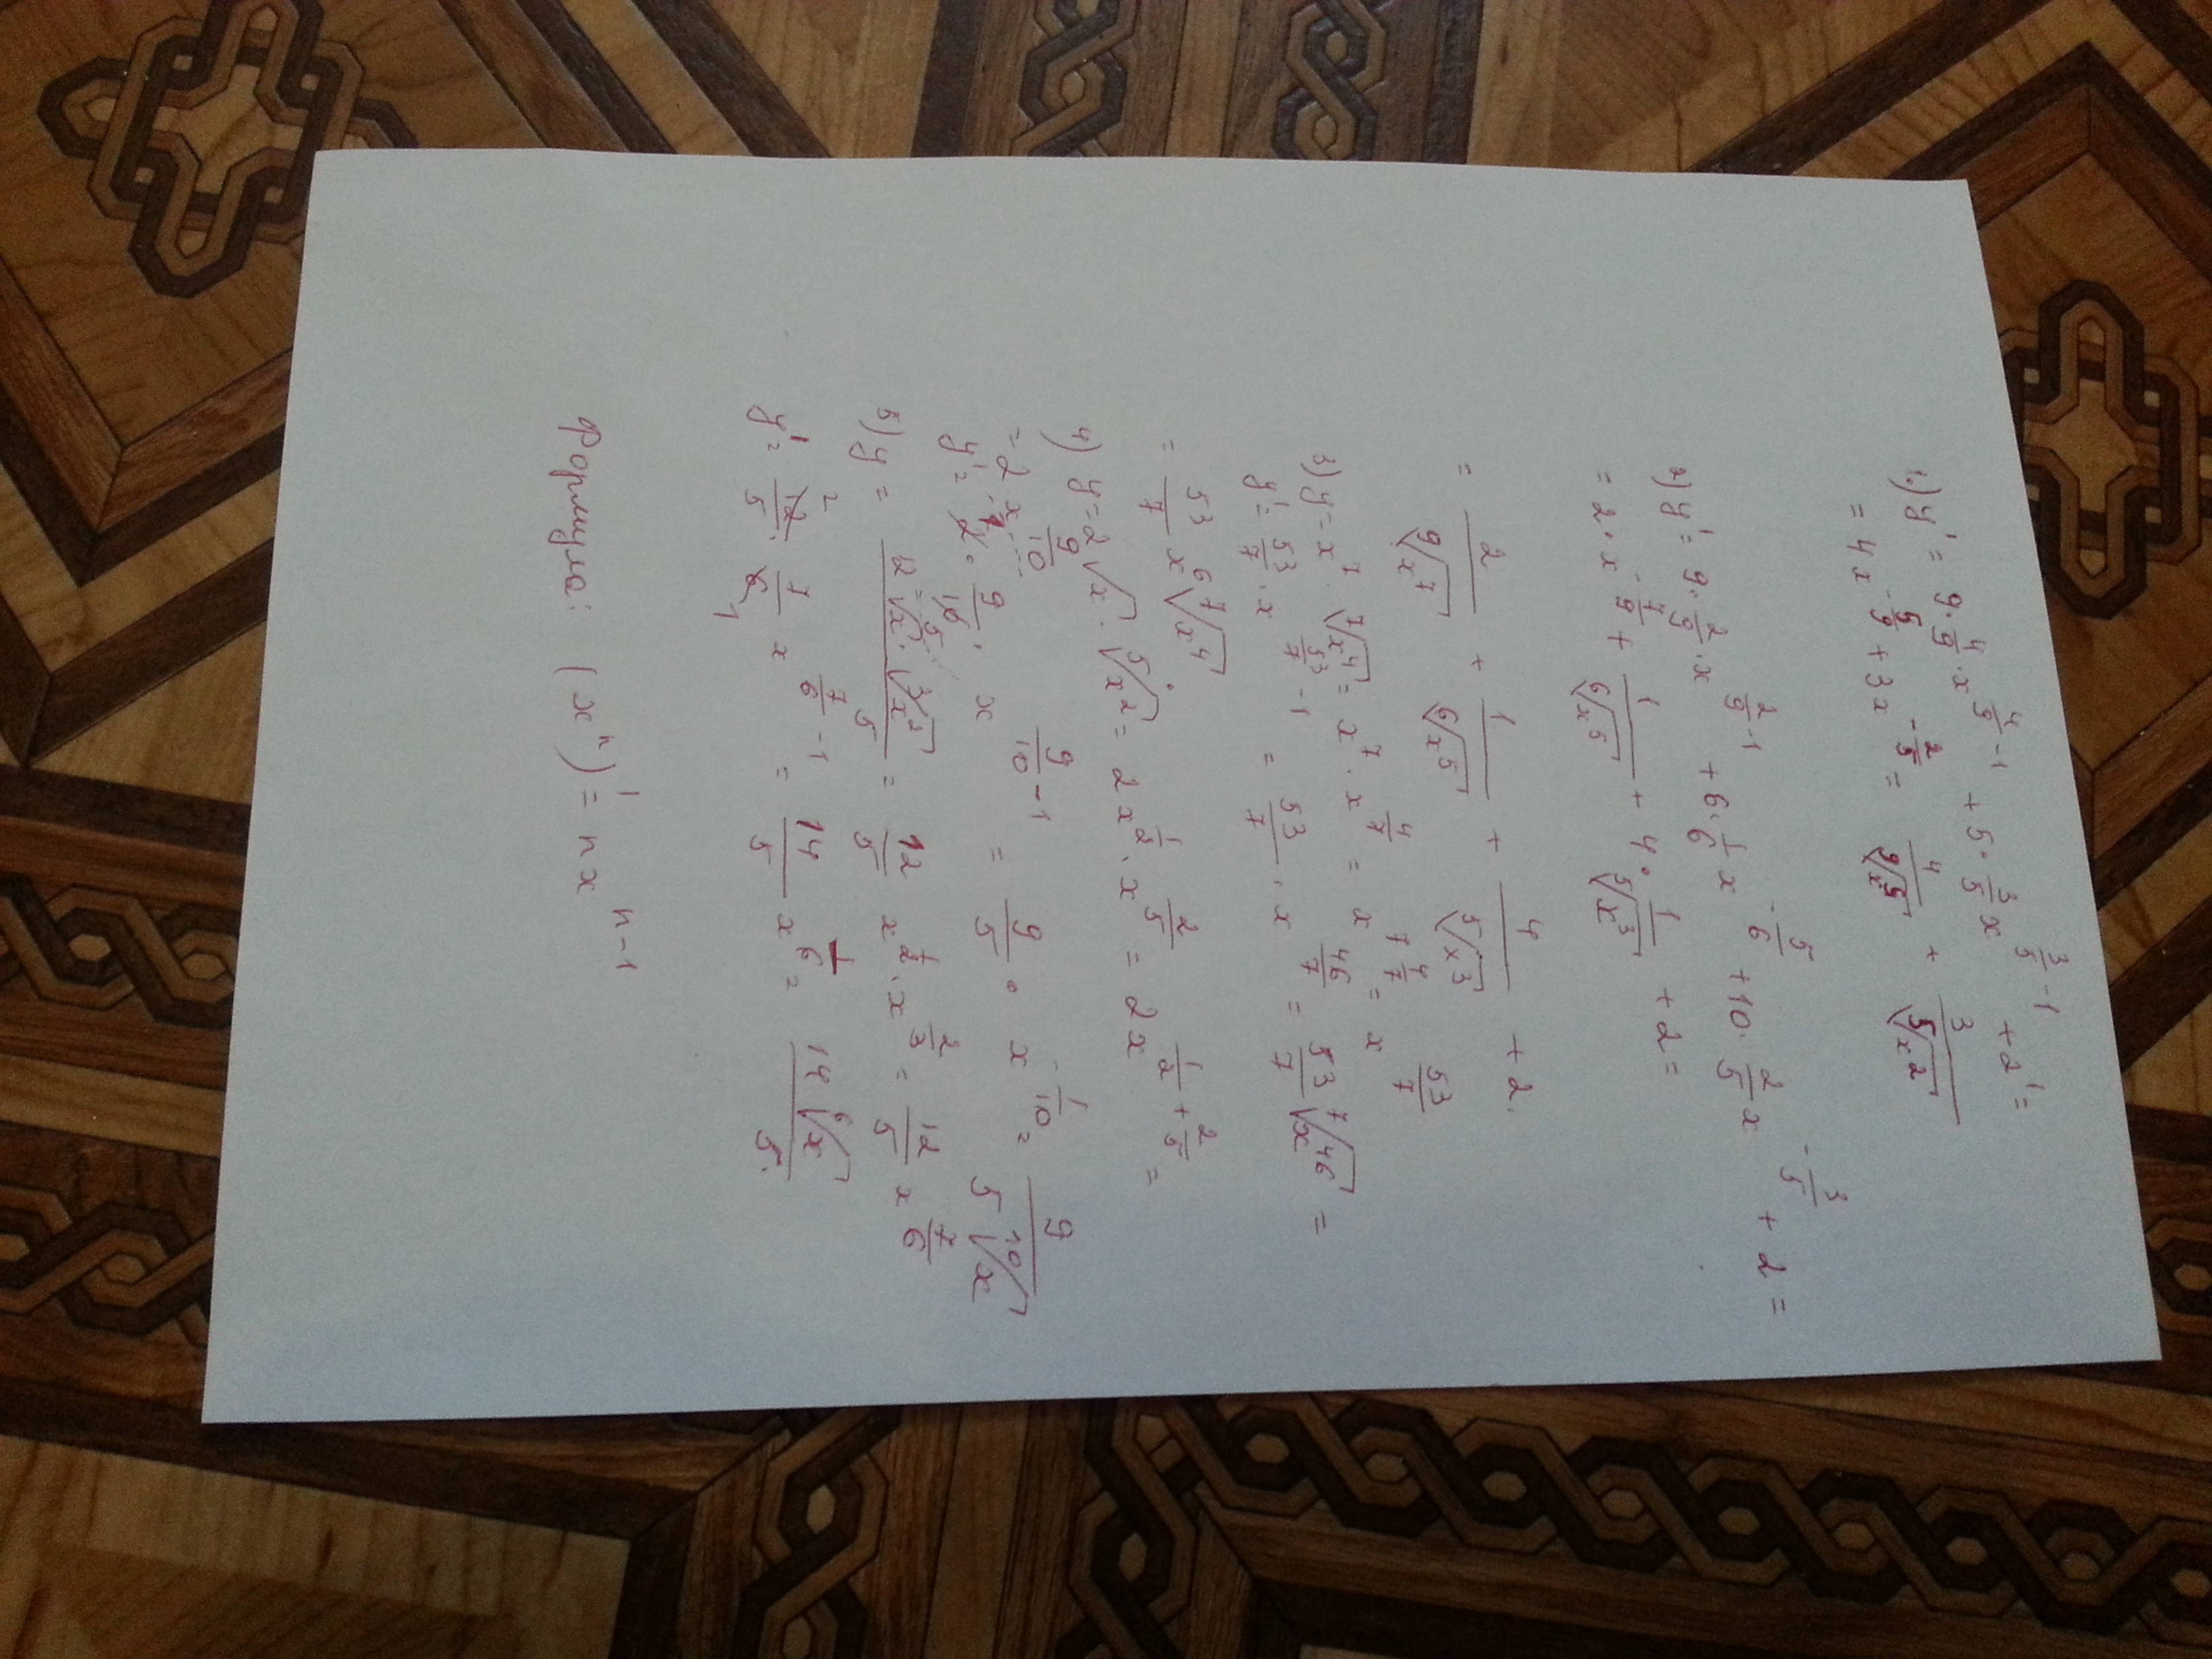 1.) y' = 9·4/9·x^(4/9 -1) + 5·3/5 x^(3/5 -1) + 2' =
= 4x^(-5/9) + 3x^(-2/5) = 4/⁹√x⁵ + 3/⁵√x²
2) y' = 9·2/9·x^(2/9 -1) + 6·1/6 x^(-5/6) + 10·2/5 x^(-3/5) + 2 =
= 2·x^(-7/9) + 1/⁶√x⁵ + 4·1/⁵√x³ + 2 =
= 2/⁹√x⁷ + 1/⁶√x⁵ + 4/⁵√x³ + 2.
3) y = x⁷·⁷√x⁴ = x⁷·x^(4/7) = x^(7 4/7) = x^(53/7)
y' = 53/7·x^(53/7 -1) = 53/7·x^(46/7) = 53/7 ⁷√x⁴⁶ =
= 53/7 x⁶ ⁷√x⁴
4) y = 2√x·⁵√x² = 2x^(1/2)·x^(2/5) = 2x^(1/2 + 2/5) =
= 2·x^(9/10)
y' = 2·9/10·x^(9/10 -1) = 9/5·x^(-1/10) = 9/(5 ¹⁰√x)
5) y = 12√x·³√x²/5 = 12/5 x^(1/2)·x^(2/3) = 12/5 x^(7/6)
y' = 12/5·7/6 x^(7/6 -1) = 14/5 x^(1/6) = 14 ⁶√x/5.
Формула: (xⁿ)' = nx^(n-1)